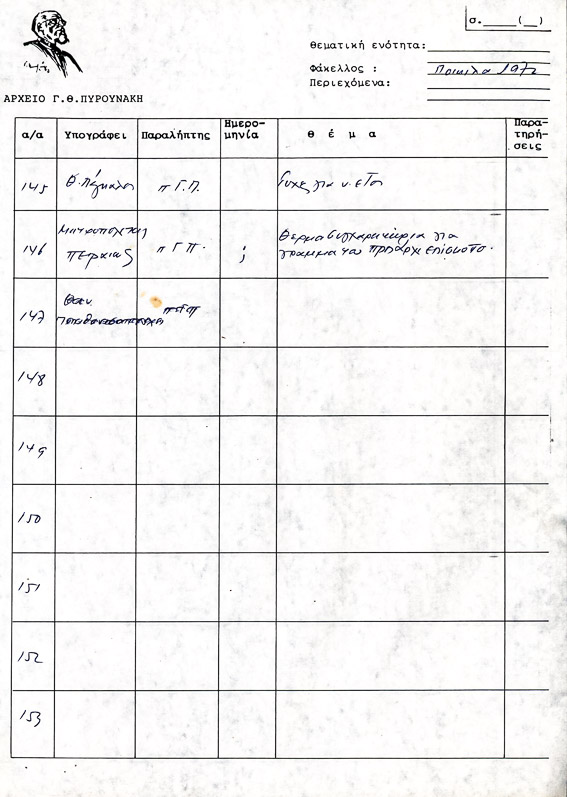 σ.____(__)
θεματική ενότητα:
Φάκελλος : Ποικιλα 1972
Περιεχόμενα:
ΑΡΧΕΙΟ Γ.Θ.ΠΥΡΟΥΝΑΚΗ
α/α Υπογράφει Παραλήπτης Ημερο-μηνία θ έ μ α Παρα-τηρή-σεις
145 Θ. π Γ.Π. Ευχες για ν. ετος
146 Μητροπολίτης π Γ Π. ; Θερμα συγχαρητήρια για
γραμμα του προς αρχιεπίσκοπο.
147 π Γ Π
148
149
150
151
152
153